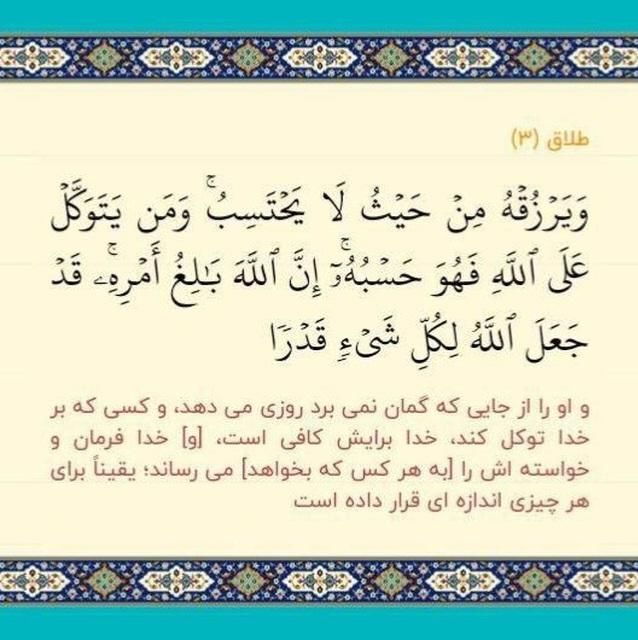 طلاق (۳)
وَيَرۡزُقۡهُ مِنۡ حَيۡثُ لَا يَحۡتَسِبُۚ وَمَن يَتَوَكَّلۡ
عَلَى ٱللَّهِ فَهُوَ حَسۡبُهُۥٓۚ إِنَّ ٱللَّهَ بَٰلِغُ أَمۡرِهِۦۚ قَدۡ
جَعَلَ ٱللَّهُ لِكُلِّ شَيۡءٖ قَدۡرٗا
و او را از جایی که گمان نمی برد روزی می دهد، و کسی که بر
خدا توکل کند، خدا برایش کافی است، [و] خدا فرمان و
خواسته اش را [به هر کس که بخواهد] می رساند؛ یقیناً برای
هر چیزی اندازه ای قرار داده است